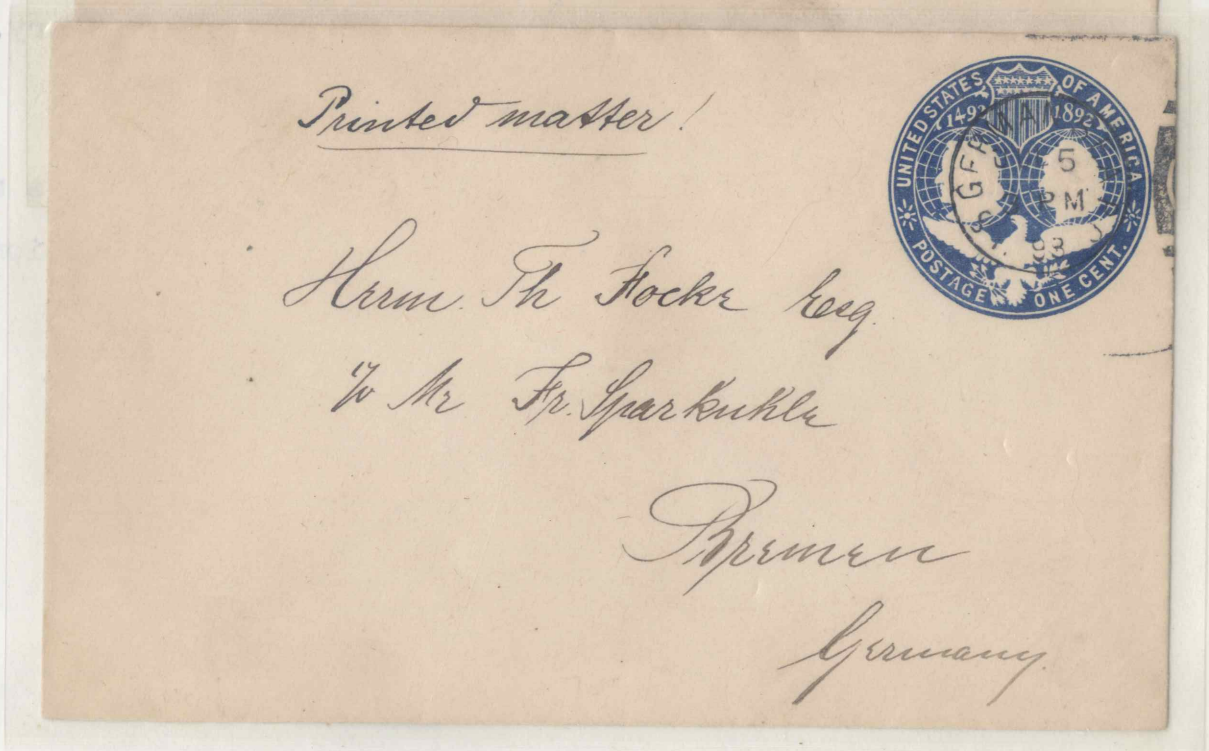 Printed matter!
UNITED STATES OF AMERICA
1492 1892
5
PM
93
POSTAGE ONE CENT.
Herrn. Th Focke Esq.
c/o Mr Fr. Sparkuhle
Bremen
Germany.